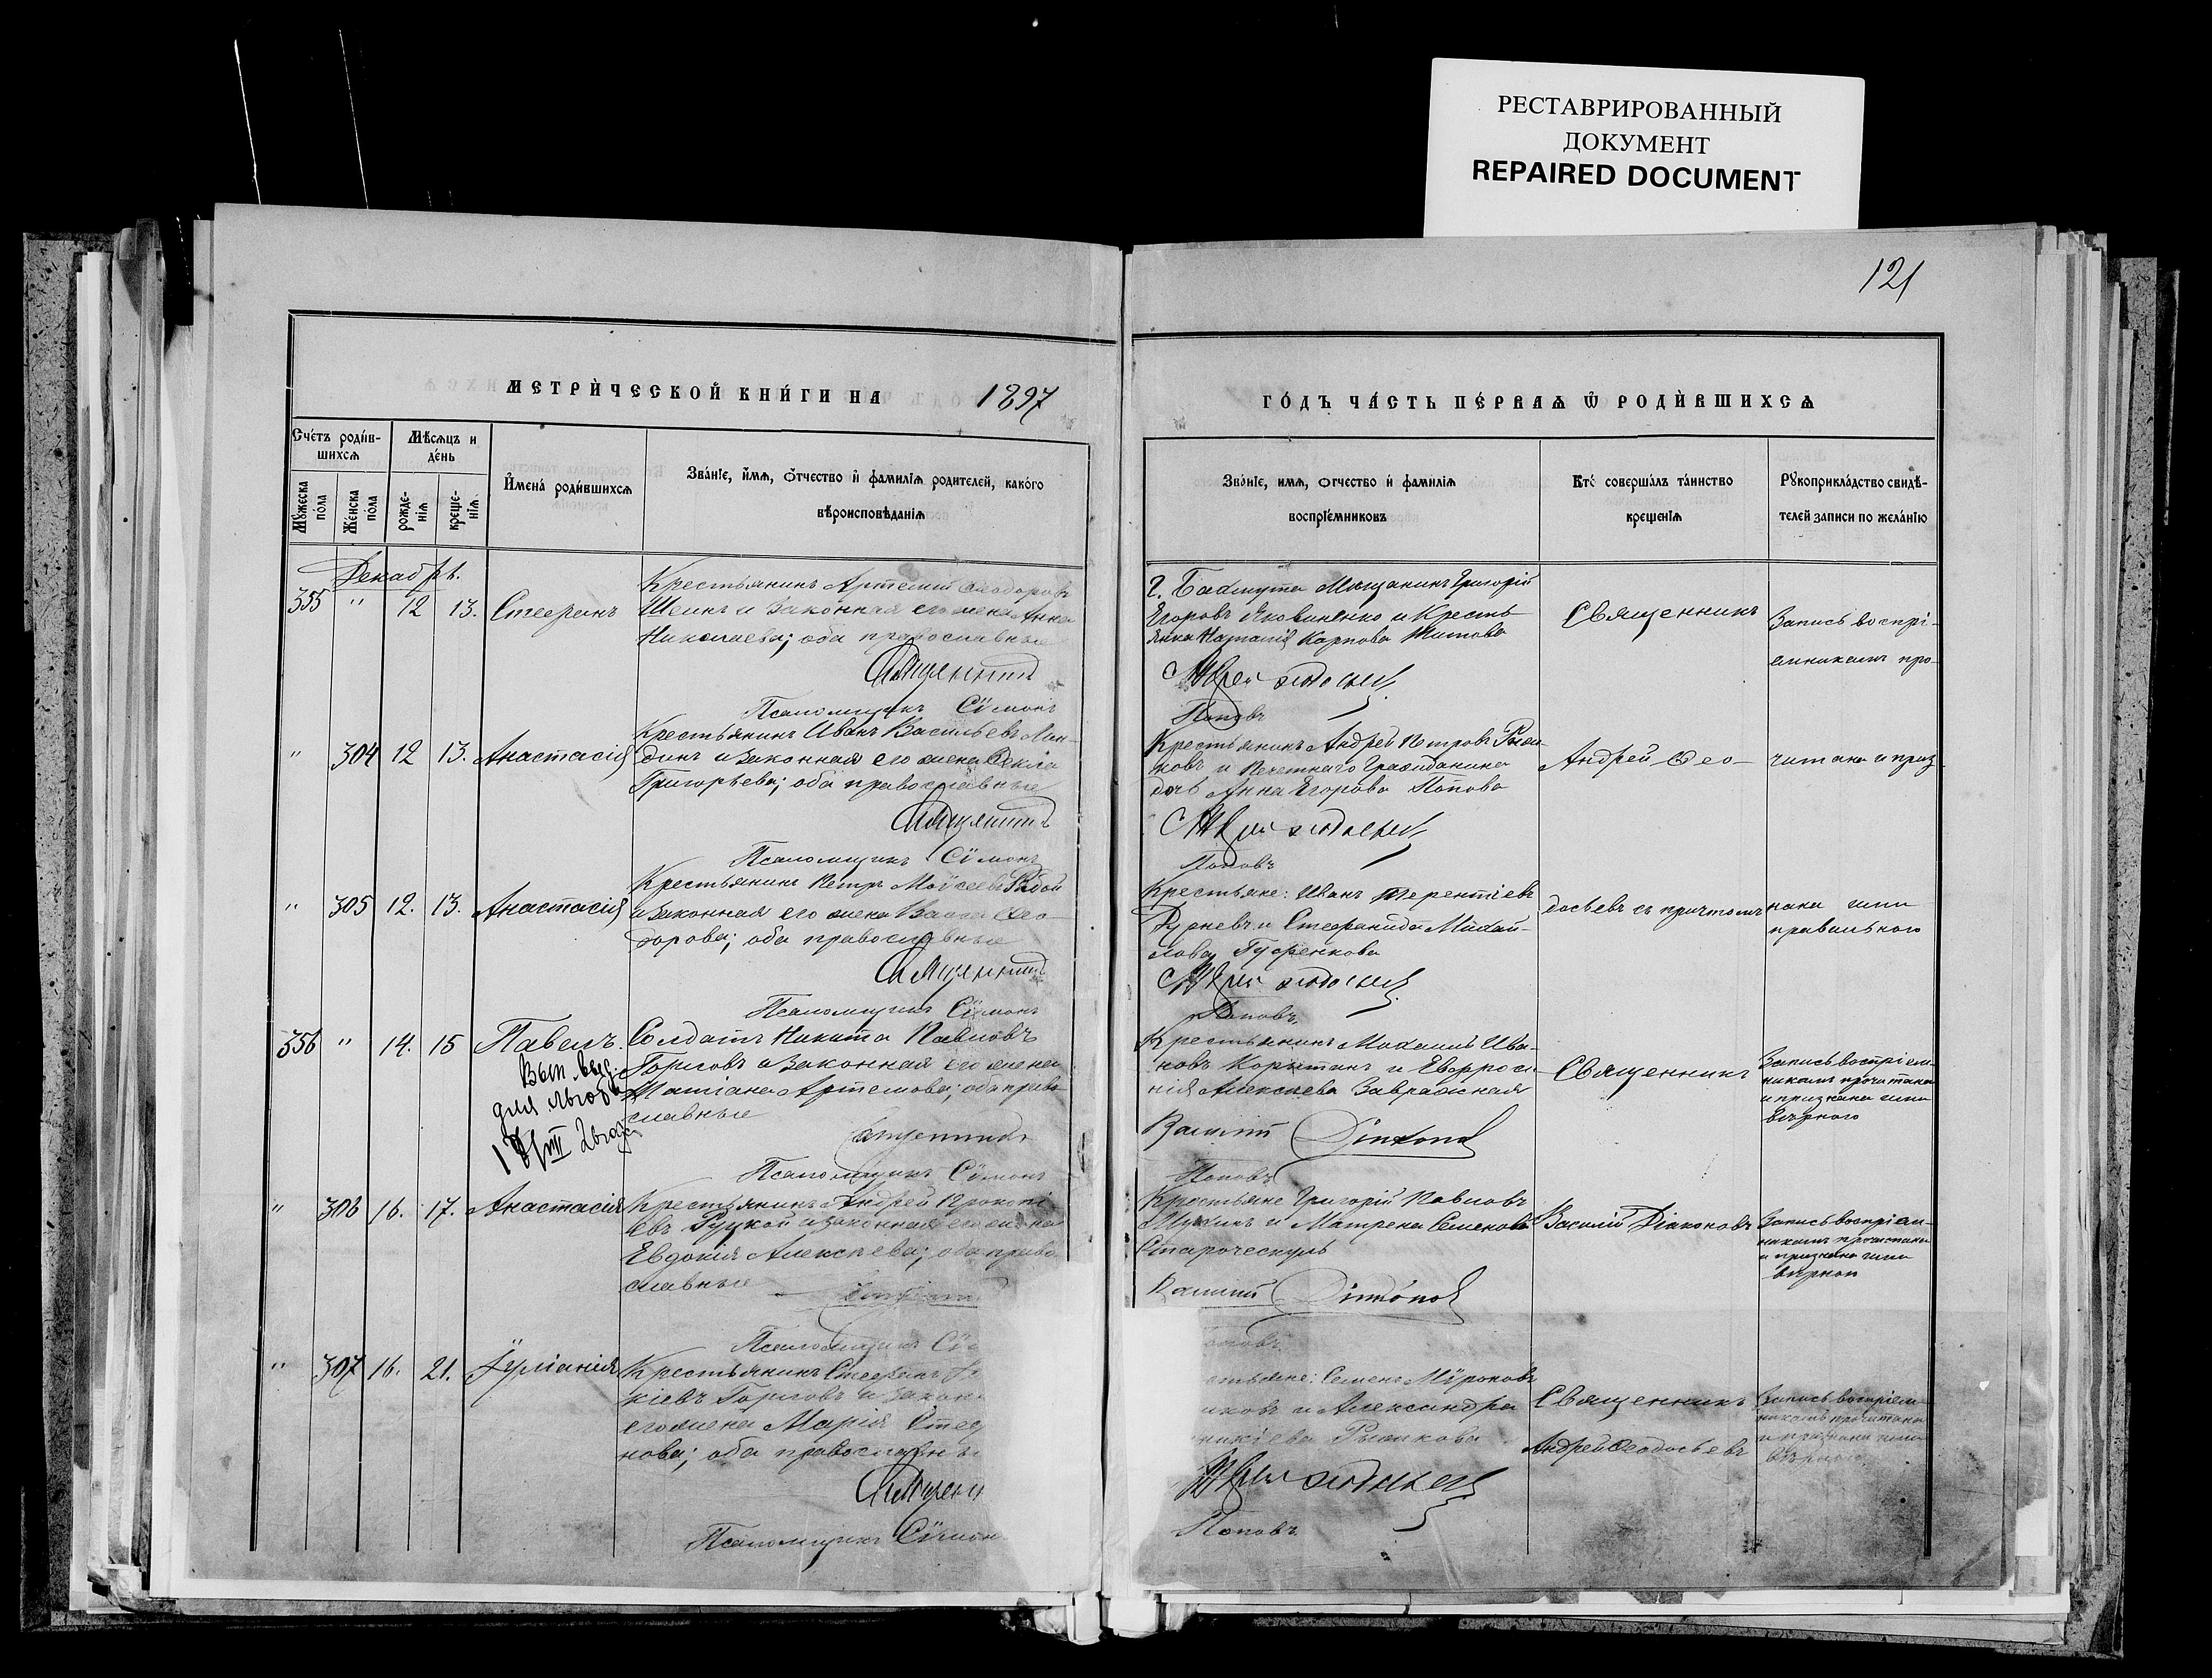 РЕСТАВРИРОВАННЫЙ
ДОКУМЕНТ
REPAIRED DOCUMENT
121
МЕТРИ́ЧЕСКОЙ КНИ́ГИ НА 1897
ГО́ДЪ ЧА́СТЬ ПЕ́РВАѦ Ѿ РОДИ́ВШИХСѦ
Сче́тъ роди́в-
шихсѧ
Мѣ́сѧцъ и
де́нь
Мꙋ́жеска
пола
Же́нска
по́ла
рожде-
нїѧ
креще-
нїѧ
И҆мена́ роди́вшихсѧ
Зва́нїе, и҆́мѧ, ѻ҆́тчество и҆ фамилїѧ родителей, како́го
вѣроисповѣданїѧ
Зва́нїе, имѧ, ѻтчество и҆ фамилїѧ
воспрїе́мниковъ
Кто́ соверша́лъ та́инство
креще́нїѧ
Рꙋкоприкла́дство свидѣ́-
телей записи по жела́нїю
Декабрь.
355 " 12 13. Стефанъ
Крестьянинъ Артемій Ѳеодоровъ
Шеинъ и законная его жена Анна
Николаева; оба православные
Священникъ
Псаломщикъ Сѵмонъ
Г. Бахмута Мѣщанинъ Григорій
Егоровъ Яковиненко и Кресть
янка Наталія Карпова Титова
Поповъ
Священникъ
Запись воспрі-
емникамъ про-
" 304 12 13. Анастасія
Крестьянинъ Иванъ Васильевъ
динъ и законная его жена Ѳекла
Григорьева; оба православные
Священникъ
Псаломщикъ Сѵмонъ
Крестьянинъ Андрей Петровъ
ковъ и Почетнаго Гражданина
дочь Анна Егорова Попова
Поповъ
Андрей Ѳео-
читана и приз
" 305 12. 13. Анастасія
Крестьянинъ Петръ Моѵсеевъ
и законная его жена Ѳео-
дорова; оба православные
Священникъ
Псаломщикъ Сѵмонъ
Крестьяне: Иванъ Терентіевъ
и Стефанида Михай-
лова Гуфренкова
Поповъ.
досьевъ съ причтомъ
нана ими
правильного
356 " 14. 15 Павелъ.
для
Солдатъ Никита Павловъ
Горловъ и законная его жена
Татіана Артемова; оба право
славные
Священникъ
Псаломщикъ Сѵмонъ
Крестьянинъ Михаилъ Ива-
новъ и Евфроси-
нія Алексѣева Завражная
Василій Діаконовъ
Поповъ
Священникъ
Запись воспріем-
никамъ прочитана
и признана ими
вѣрного
" 306 16. 17. Анастасія
Крестьянинъ Андрей Прокопі
евъ Руцкой и законная его жена
Евдокія Алексѣева; оба право
славные
Псаломщикъ
Крестьяне Григорій Павловъ
и Матрена Семенова
Василій Діаконовъ
Василій Діаконовъ
Запись воспріем-
никамъ прочитана
и признана ими
вѣрной
" 307 16. 21. Іуліанія
Крестьянинъ Стефанъ
кіевъ Горловъ и закон
его жена Марія Стеф
нова; оба православны
Священн
Псаломщикъ Сѵмон
Семенъ Мѵроновъ
иковъ и Александра
Рыжкова
Поповъ.
Священникъ
Андрей Ѳеодосьевъ
Запись воспріем-
никамъ прочитана
и признана ими